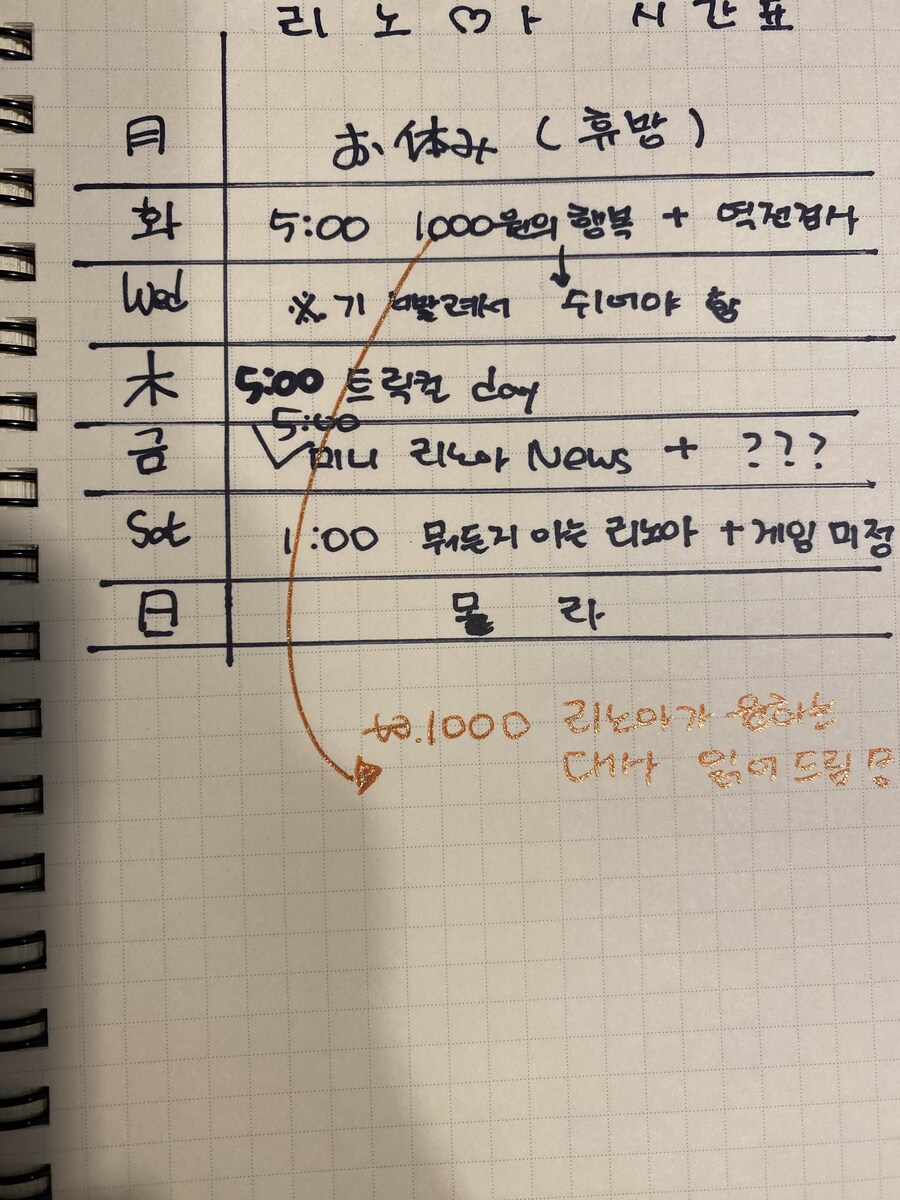 리노아 시간표
月 お休み (휴방)
화 5:00 1000원의 행복 + 역전검사
Wed ※기 빨려서 쉬어야 함
木 5:00 트릭컬 day
5:00
금 미니 리노아 News + ???
Sat 1:00 뭐든지 아는 리노아 + 게임 미정
日 몰 라
1000 리노아가 원하는
대사 읽어드림